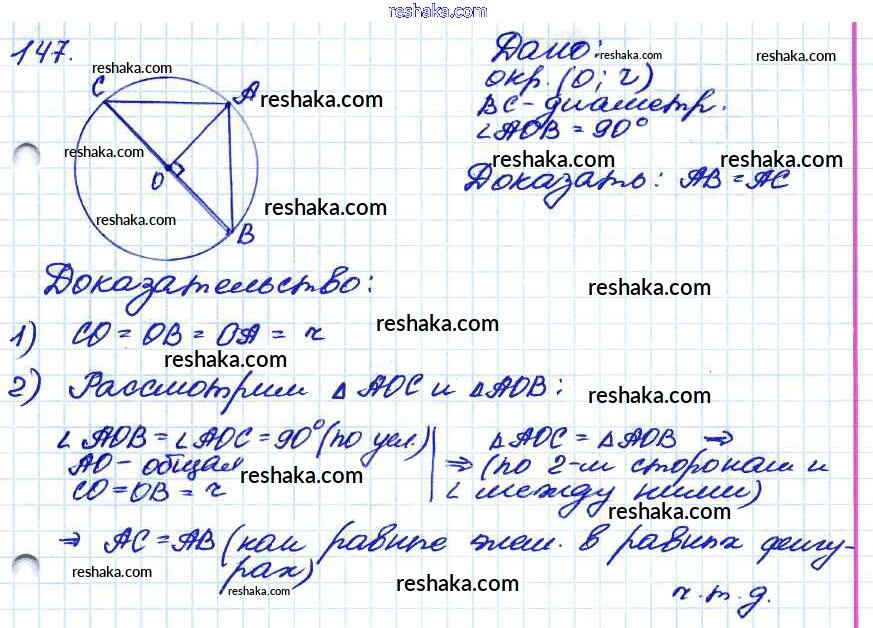 reshaka.com
147.
reshaka.com
Дано: reshaka.com
reshaka.com
окр. (O; r)
C
A reshaka.com
BC - диаметр.
∠AOB = 90°
reshaka.com
reshaka.com
reshaka.com
O
Доказать: AB = AC
reshaka.com
reshaka.com
B
Доказательство:
reshaka.com
1) CO = OB = OA = r
reshaka.com
reshaka.com
2) Рассмотрим △AOC и △AOB:
reshaka.com
∠AOB = ∠AOC = 90° (по усл.)
AO - общая
CO = OB = r
reshaka.com
△AOC = △AOB ⇒
⇒ (по 2-м сторонам и
∠ между ними)
reshaka.com
⇒ AC = AB (как равные элем. в равных фигу-
рах)
reshaka.com
reshaka.com
reshaka.com
ч.т.д.